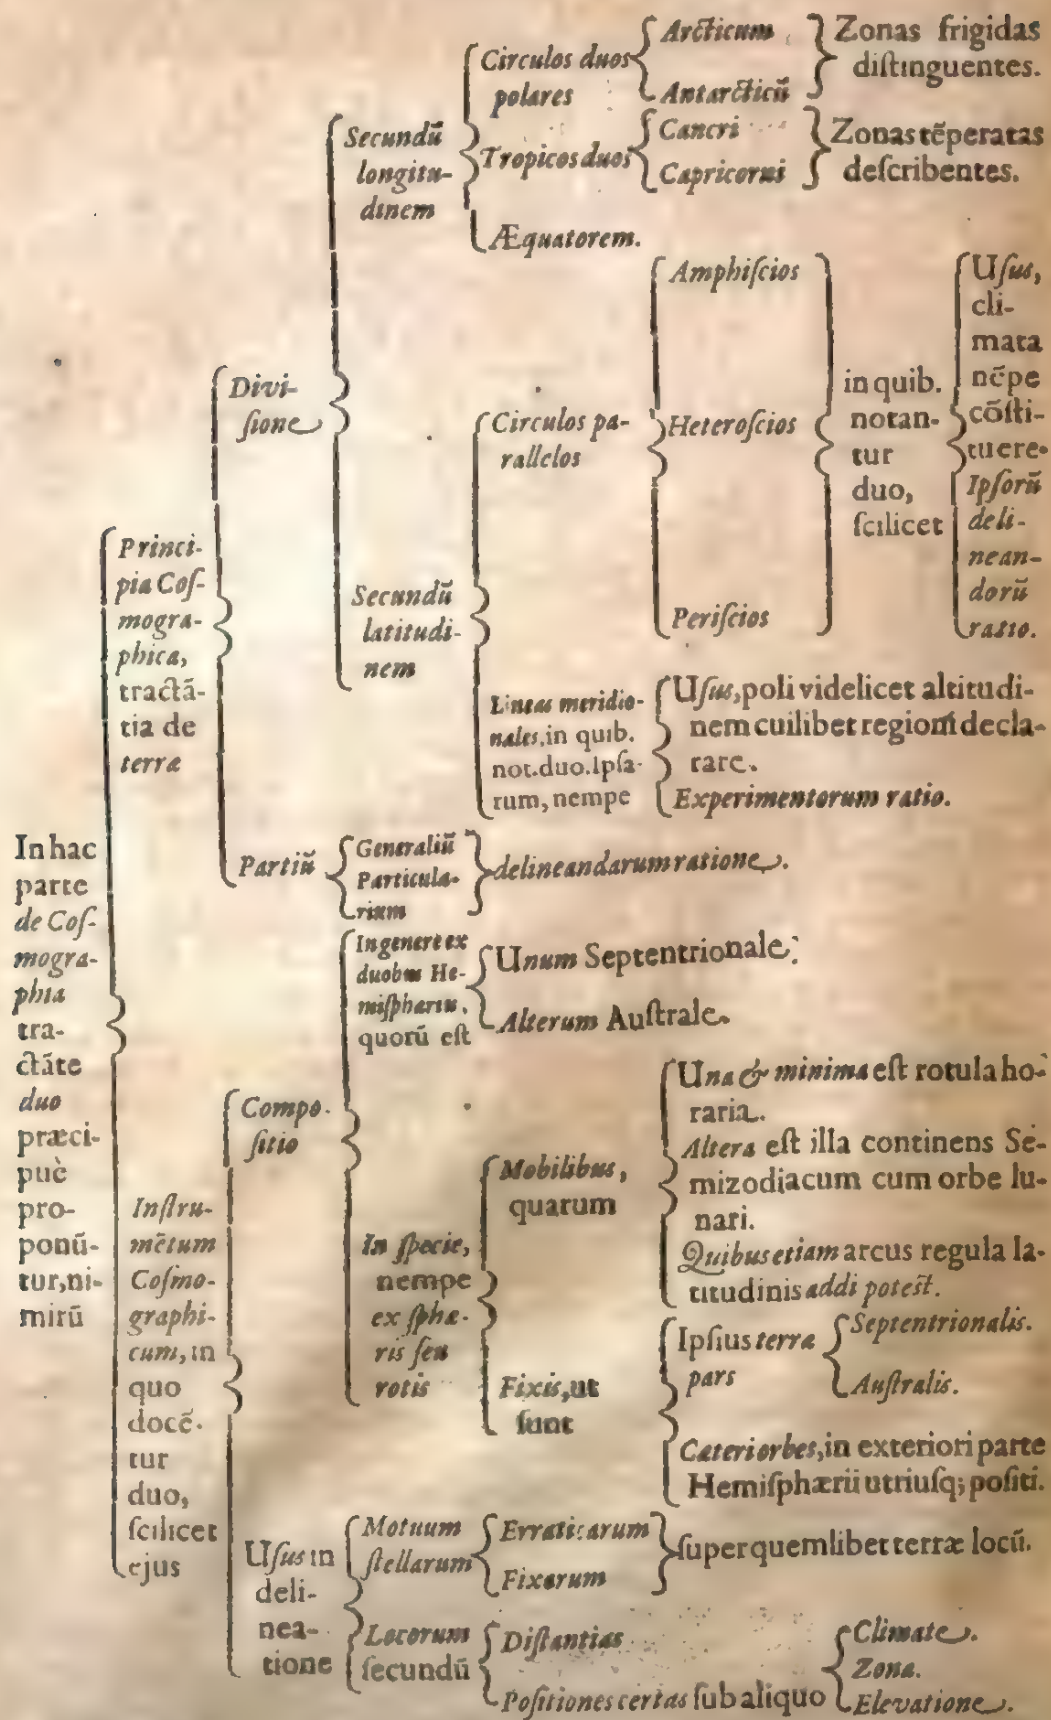 In hac
parte
de Coſ-
mogra-
phia
tra-
ctāte
duo
præci-
puè
pro-
ponū-
tur, ni-
mirū
Princi-
pia Coſ-
mogra-
phica,
tractā-
tia de
terra
Divi-
ſione
Secundū
longitu-
dinem
Circulos duos
polares
Arcticum
Antarcticū
Zonas frigidas
diſtinguentes.
Tropicos duos
Cancri
Capricorni
Zonas tēperatas
deſcribentes.
Æquatorem.
Secundū
latitudi-
nem
Circulos pa-
rallelos
Amphiſcios
Heteroſcios
Periſcios
in quib.
notan-
tur
duo,
ſcilicet
Uſus,
cli-
mata
nēpe
cōſti-
tuere.
Ipſorū
deli-
nean-
dorū
ratio.
Lineas meridio-
nales, in quib.
not. duo. Ipſa-
rum, nempe
Uſus, poli videlicet altitudi-
nem cuilibet regioni decla-
rare.
Experimentorum ratio.
Partiū
Generaliū
Particula-
rium
delineandarum ratione.
Inſtru-
mētum
Coſmo-
graphi-
cum, in
quo
docē-
tur
duo,
ſcilicet
ejus
Compo-
ſitio
In genere ex
duobus He-
miſphæriis,
quorū eſt
Unum Septentrionale.
Alterum Auſtrale.
In ſpecie,
nempe
ex ſphæ-
ris ſeu
rotis
Mobilibus,
quarum
Una & minima eſt rotula ho-
raria.
Altera eſt illa continens Se-
mizodiacum cum orbe lu-
nari.
Quibus etiam arcus regula la-
titudinis addi poteſt.
Fixis, ut
ſunt
Ipſius terræ
pars
Septentrionalis.
Auſtralis.
Cæteri orbes, in exteriori parte
Hemiſphærii utriuſq; poſiti.
Uſus in
deli-
nea-
tione
Motuum
ſtellarum
Erraticarum
Fixarum
ſuper quemlibet terræ locū.
Locorum
ſecundū
Diſtantias
Poſitiones certas ſub aliquo
Climate.
Zona.
Elevatione.